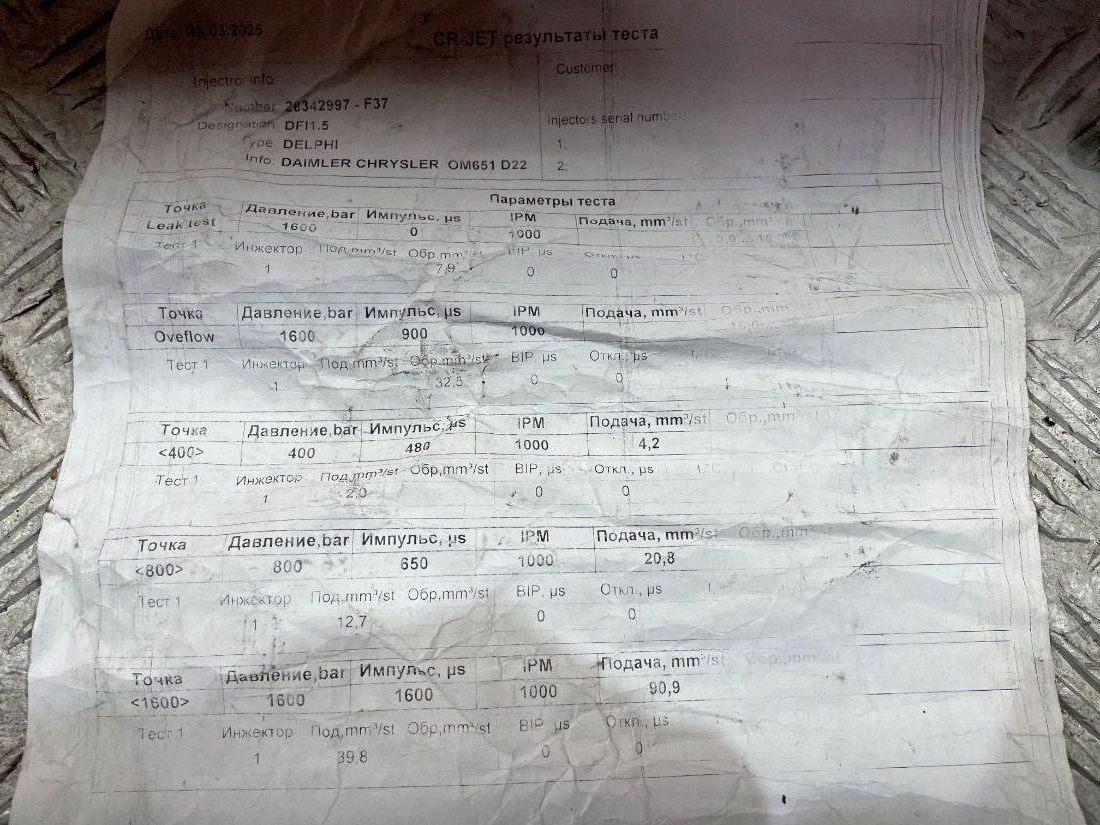 Дата: 28.03.2025
CR-JET результаты теста
Injector info
Customer:
Number 28342997 - F37
Designation DFI1.5
Injectors serial number:
Type DELPHI
1.
Info: DAIMLER CHRYSLER OM651 D22
2.
Параметры теста
Точка Давление,bar Импульс, µs IPM Подача, mm³/st Обр.,mm³
Leak test 1600 0 1000
Тест 1 Инжектор Под,mm³/st Обр,mm³/st BIP, µs Откл., µs
1 7,9 0 0
Точка Давление,bar Импульс, µs IPM Подача, mm³/st Обр.,mm
Oveflow 1600 900 1000
Тест 1 Инжектор Под,mm³/st Обр,mm³/st BIP, µs Откл., µs
1 32,5 0 0
Точка Давление,bar Импульс, µs IPM Подача, mm³/st Обр.,mm
<400> 400 480 1000 4,2
Тест 1 Инжектор Под,mm³/st Обр,mm³/st BIP, µs Откл., µs
1 2,0 0 0
Точка Давление,bar Импульс, µs IPM Подача, mm³/st Обр.,mm
<800> 800 650 1000 20,8
Тест 1 Инжектор Под,mm³/st Обр,mm³/st BIP, µs Откл., µs
1 12,7 0 0
Точка Давление,bar Импульс, µs IPM Подача, mm³/st Обр.,mm
<1600> 1600 1600 1000 90,9
Тест 1 Инжектор Под,mm³/st Обр,mm³/st BIP, µs Откл., µs
1 39,8 0 0